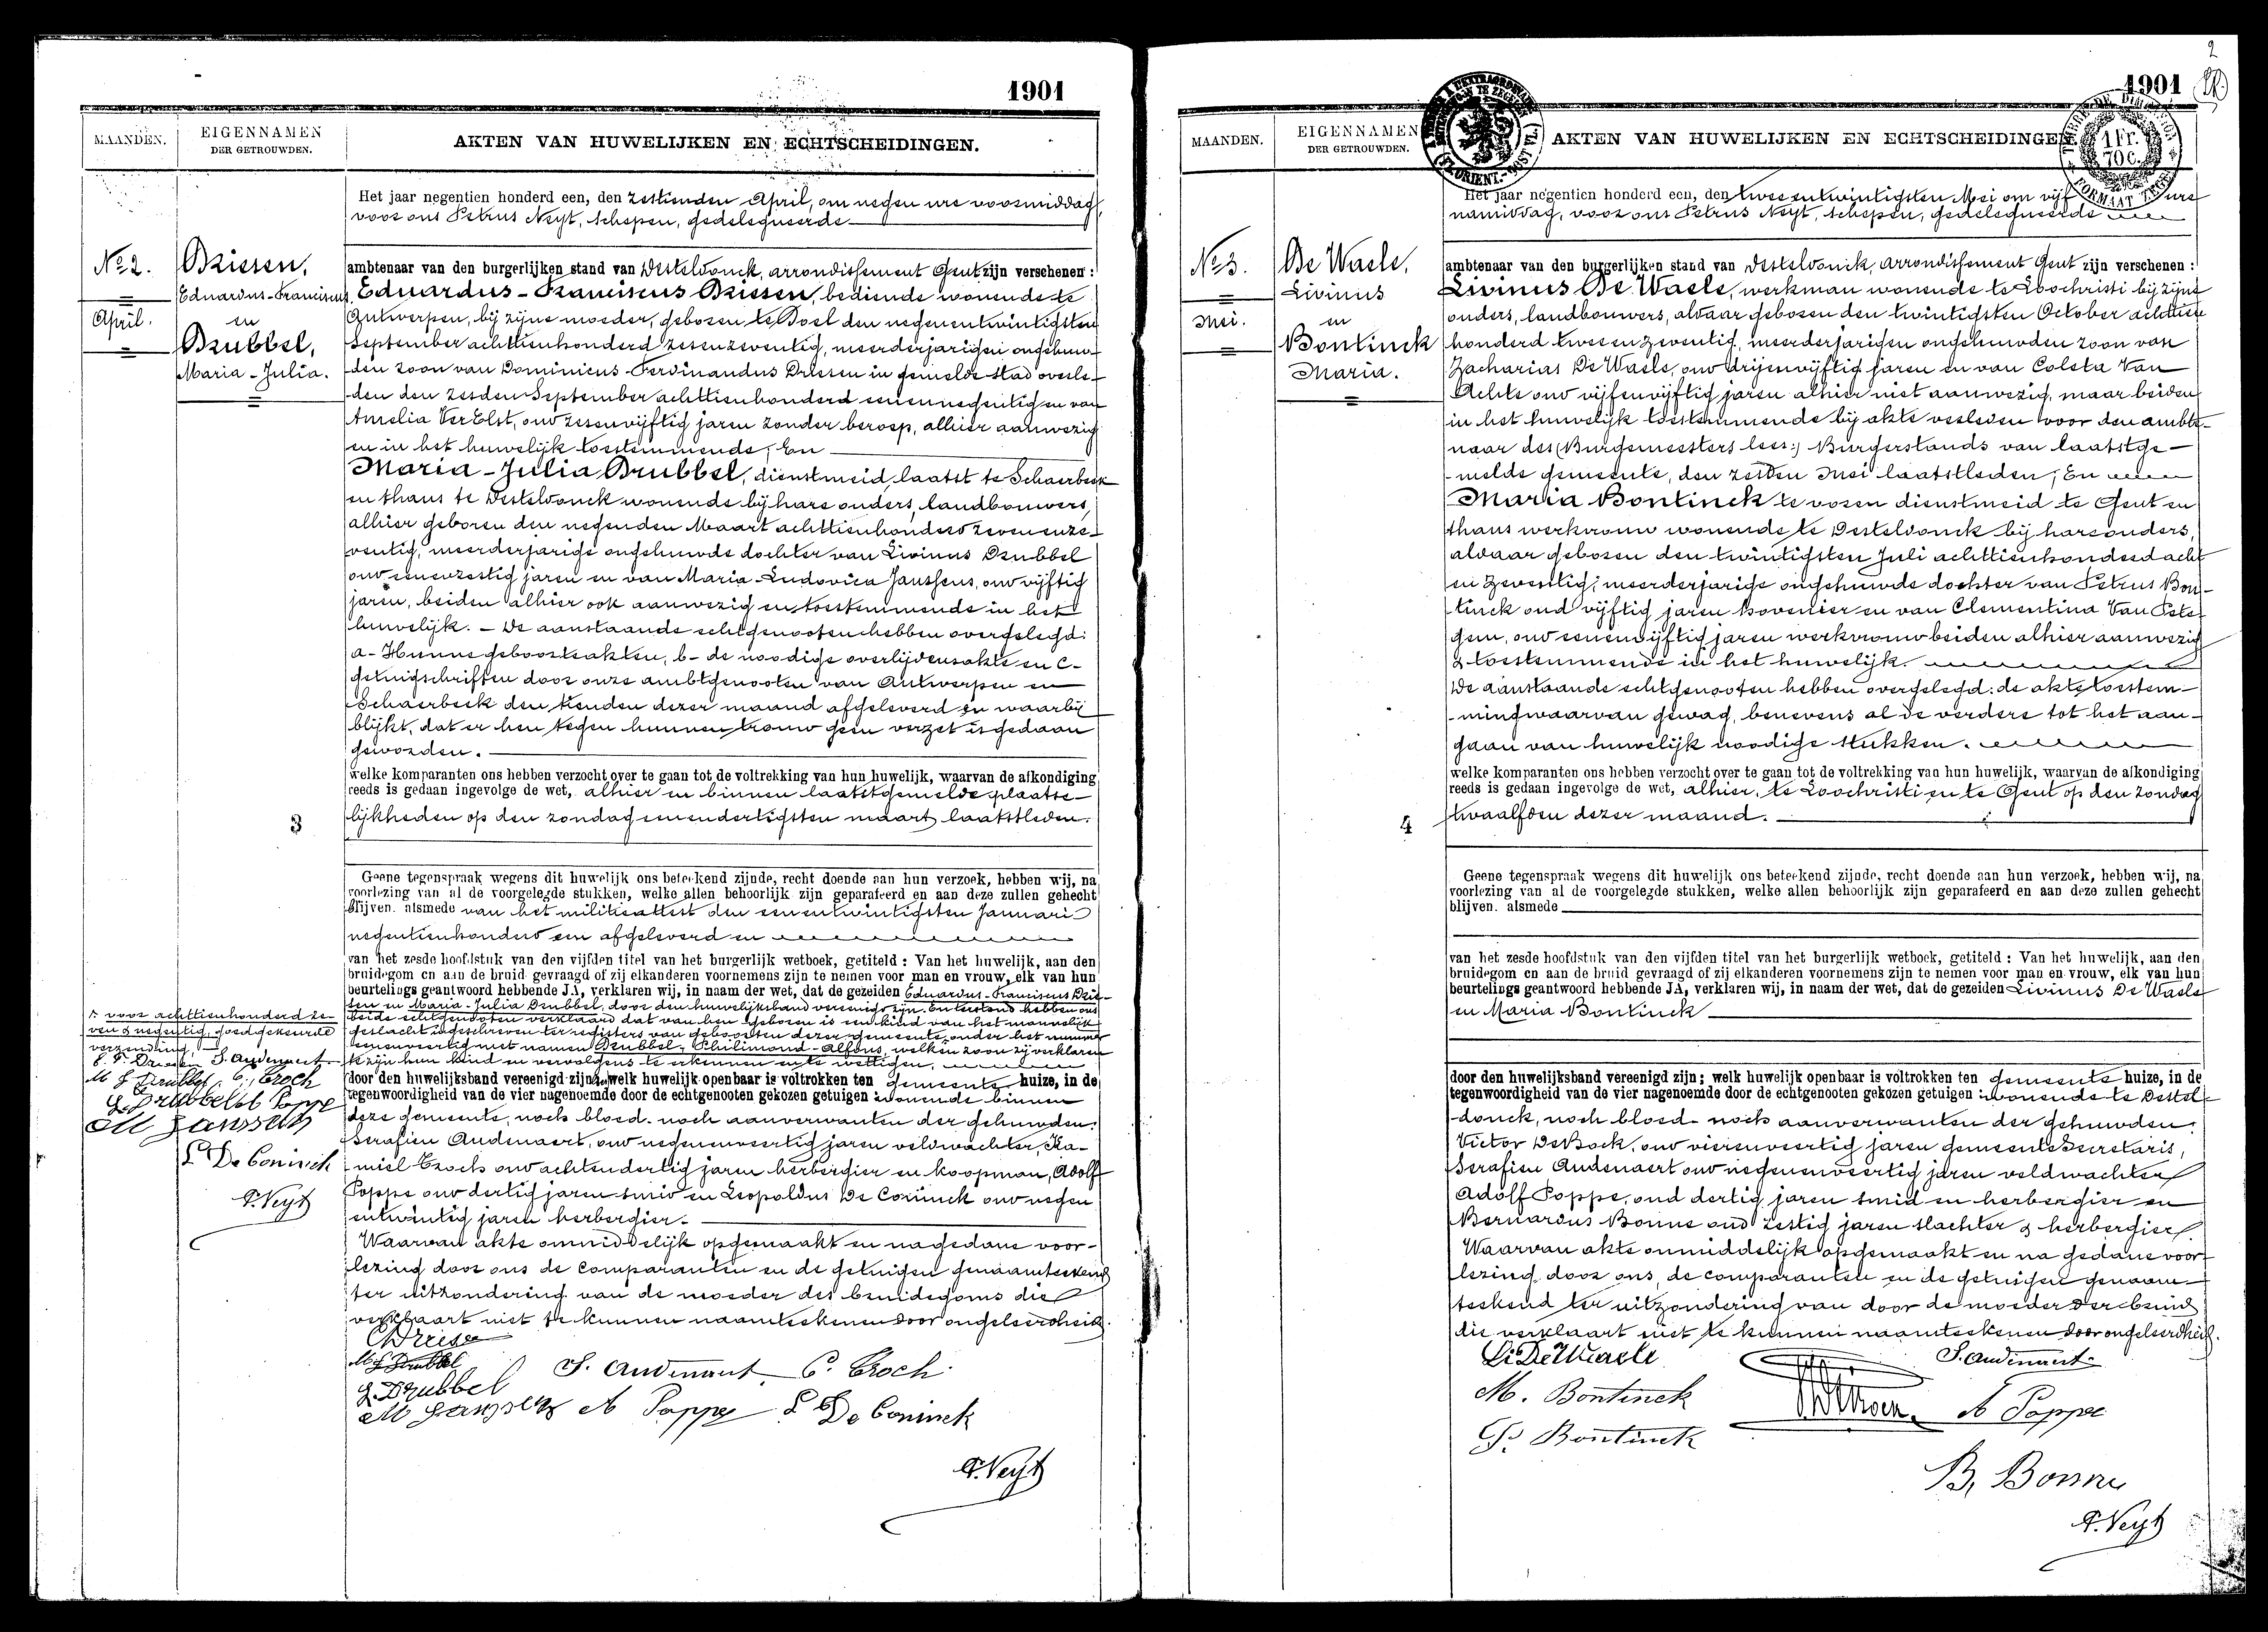 1901
MAANDEN.
EIGENNAMEN
DER GETROUWDEN.
AKTEN VAN HUWELIJKEN EN ECHTSCHEIDINGEN.
Het jaar negentien honderd een, den zestienden April, om negen ure voormiddag,
voor ons Petrus Neyt, schepen, gedelegueerde
No 2.
April.
Driesen,
Eduardus-Franciscus
en
Drubbel,
Maria-Julia.
ambtenaar van den burgerlijken stand van Desteldonck, arrondissement Gent zijn verschenen :
Eduardus-Franciscus Driesen, bediende wonende te
Antwerpen, bij zijne moeder, geboren te Doel den negenentwintigsten
September achttienhonderd zesenzeventig, meerderjarigen ongehuw-
den zoon van Dominicus-Ferdinandus Driesen in gemelde stad overle-
den den zesden September achttienhonderd eenennegentig en van
Amelia VerElst, oud zesenvijftig jaren zonder beroep, alhier aanwezig
en in het huwelijk toestemmende; En
Maria-Julia Drubbel, dienstmeid, laatst te Schaerbeek
en thans te Desteldonck wonende bij hare ouders, landbouwers,
alhier geboren den negenden Maart achttienhonderd zevenenze-
ventig, meerderjarige ongehuwde dochter van Livinus Drubbel
oud eenenzestig jaren en van Maria-Ludovica Janssens, oud vijftig
jaren, beiden alhier ook aanwezig en toestemmende in het
huwelijk. - De aanstaande echtgenooten hebben overgelegd:
a- Hunne geboorteakten, b- de noodige overlijdensakte en c-
getuigschriften door onze ambtgenooten van Antwerpen en
Schaerbeek den tienden dezer maand afgeleverd en waarbij
blijkt, dat er hen tegen hunnen trouw geen verzet is gedaan
geworden.
welke komparanten ons hebben verzocht over te gaan tot de voltrekking van hun huwelijk, waarvan de afkondiging
reeds is gedaan ingevolge de wet, alhier en binnen laatstgemelde plaatse-
lijkheden op den zondag eenendertigsten maart laatstleden.
3
Geene tegenspraak wegens dit huwelijk ons beteekend zijnde, recht doende aan hun verzoek, hebben wij, na
voorlezing van al de voorgelegde stukken, welke allen behoorlijk zijn geparafeerd en aan deze zullen gehecht
blijven. alsmede van het militieattest den eenentwintigsten Januari
negentienhonderd een afgeleverd en
van het zesde hoofdstuk van den vijfden titel van het burgerlijk wetboek, getiteld : Van het huwelijk, aan den
bruidegom en aan de bruid gevraagd of zij elkanderen voornemens zijn te nemen voor man en vrouw, elk van hun
beurtelings geantwoord hebbende JA, verklaren wij, in naam der wet, dat de gezeiden Eduardus-Franciscus Drie-
sen en Maria-Julia Drubbel, door den huwelijksband vereenigd zijn. En terstond hebben ons
beide echtgenooten verklaard dat van hen geboren is een kind van het mannelijk
geslacht ingeschreven ter registers van geboorten dezer gemeente onder het nummer
eenenveertig met namen Drubbel, Philimond-Alfons, welken zoon zij verklaren
zijn hun kind en vervolgens te erkennen en te wettigen.
voor achttienhonderd ze-
ven & negentig, goedgekeurde
verzending.
S. Audenaert
C. Croch
M Janssens
L De Coninck
P. Neyt
door den huwelijksband vereenigd zijn; welk huwelijk openbaar is voltrokken ten gemeente huize, in de
tegenwoordigheid van de vier nagenoemde door de echtgenooten gekozen getuigen : wonende binnen
deze gemeente, noch bloed- noch aanverwanten der gehuwden:
Serafien Audenaert, oud negenenveertig jaren veldwachter, Ka-
miel Croch oud achtendertig jaren herbergier en koopman, Adolf
Poppe oud dertig jaren smid en Leopoldus De Coninck oud negen
entwintig jaren herbergier.
Waarvan akte onmiddelijk opgemaakt en na gedane voor-
lezing door ons de comparanten en de getuigen genaamteekend
ter uitzondering van de moeder des bruidegoms die
verklaart niet te kunnen naamteekenen door ongeleerdheid.
M J Drubbel
S. Audenaert C. Croch
L. Drubbel
M Janssens A Poppe L De Coninck
P. Neyt
2
1901
MAANDEN.
EIGENNAMEN
DER GETROUWDEN.
AKTEN VAN HUWELIJKEN EN ECHTSCHEIDINGEN
1 Fr.
70 C.
Het jaar negentien honderd een, den tweeentwintigsten Mei om vijf ure
namiddag, voor ons Petrus Neyt, schepen, gedelegueerde
No 3.
Mei.
De Waele,
Livinus
en
Bontinck
Maria.
ambtenaar van den burgerlijken stand van Desteldonck, arrondissement Gent zijn verschenen :
Livinus De Waele, werkman wonende te Loochristi bij zijne
ouders, landbouwers, aldaar geboren den twintigsten October achttien
honderd tweeenzeventig, meerderjarigen ongehuwden zoon van
Zacharias De Waele, oud drijenvijftig jaren en van Coleta Van
Achte oud vijfenvijftig jaren alhier niet aanwezig, maar beiden
in het huwelijk toestemmende bij akte verleden voor den ambte-
naar des (Burgemeesters lees:) Burgerstands van laatstge-
melde gemeente, den zesden Mei laatstleden; En
Maria Bontinck te voren dienstmeid te Gent en
thans werkvrouw wonende te Desteldonck bij hare ouders,
aldaar geboren den twintigsten Juli achttienhonderd acht
en zeventig, meerderjarige ongehuwde dochter van Petrus Bon-
tinck oud vijftig jaren hovenier en van Clementina Van Pete-
gem, oud eenenvijftig jaren werkvrouw beiden alhier aanwezig
& toestemmende in het huwelijk.
De aanstaande echtgenooten hebben overgelegd: de akte toestem-
ming waarvan gewag, benevens al de verdere tot het aan-
gaan van huwelijk noodige stukken.
welke komparanten ons hebben verzocht over te gaan tot de voltrekking van hun huwelijk, waarvan de afkondiging
reeds is gedaan ingevolge de wet, alhier, te Loochristi en te Gent op den zondag
twaalfden dezer maand.
4
Geene tegenspraak wegens dit huwelijk ons beteekend zijnde, recht doende aan hun verzoek, hebben wij, na
voorlezing van al de voorgelegde stukken, welke allen behoorlijk zijn geparafeerd en aan deze zullen gehecht
blijven. alsmede
van het zesde hoofdstuk van den vijfden titel van het burgerlijk wetboek, getiteld : Van het huwelijk, aan den
bruidegom en aan de bruid gevraagd of zij elkanderen voornemens zijn te nemen voor man en vrouw, elk van hun
beurtelings geantwoord hebbende JA, verklaren wij, in naam der wet, dat de gezeiden Livinus De Waele
en Maria Bontinck
door den huwelijksband vereenigd zijn; welk huwelijk openbaar is voltrokken ten gemeente huize, in de
tegenwoordigheid van de vier nagenoemde door de echtgenooten gekozen getuigen : wonende te Destel-
donck, noch bloed- noch aanverwanten der gehuwden:
Victor De Bock, oud vierenveertig jaren gemeente Secretaris,
Serafien Audenaert oud negenenveertig jaren veldwachter
Adolf Poppe, oud dertig jaren smid en herbergier en
Bernardus Bonne oud zestig jaren slachter & herbergier.
Waarvan akte onmiddelijk opgemaakt en na gedane voor-
lezing door ons, de comparanten en de getuigen genaam-
teekend ter uitzondering van door de moeder der bruid
die verklaart niet te kunnen naamteekenen door ongeleerdheid.
Li De Waele
S. Audenaert
M. Bontinck
A Poppe
P. Bontinck
B. Bonne
P. Neyt